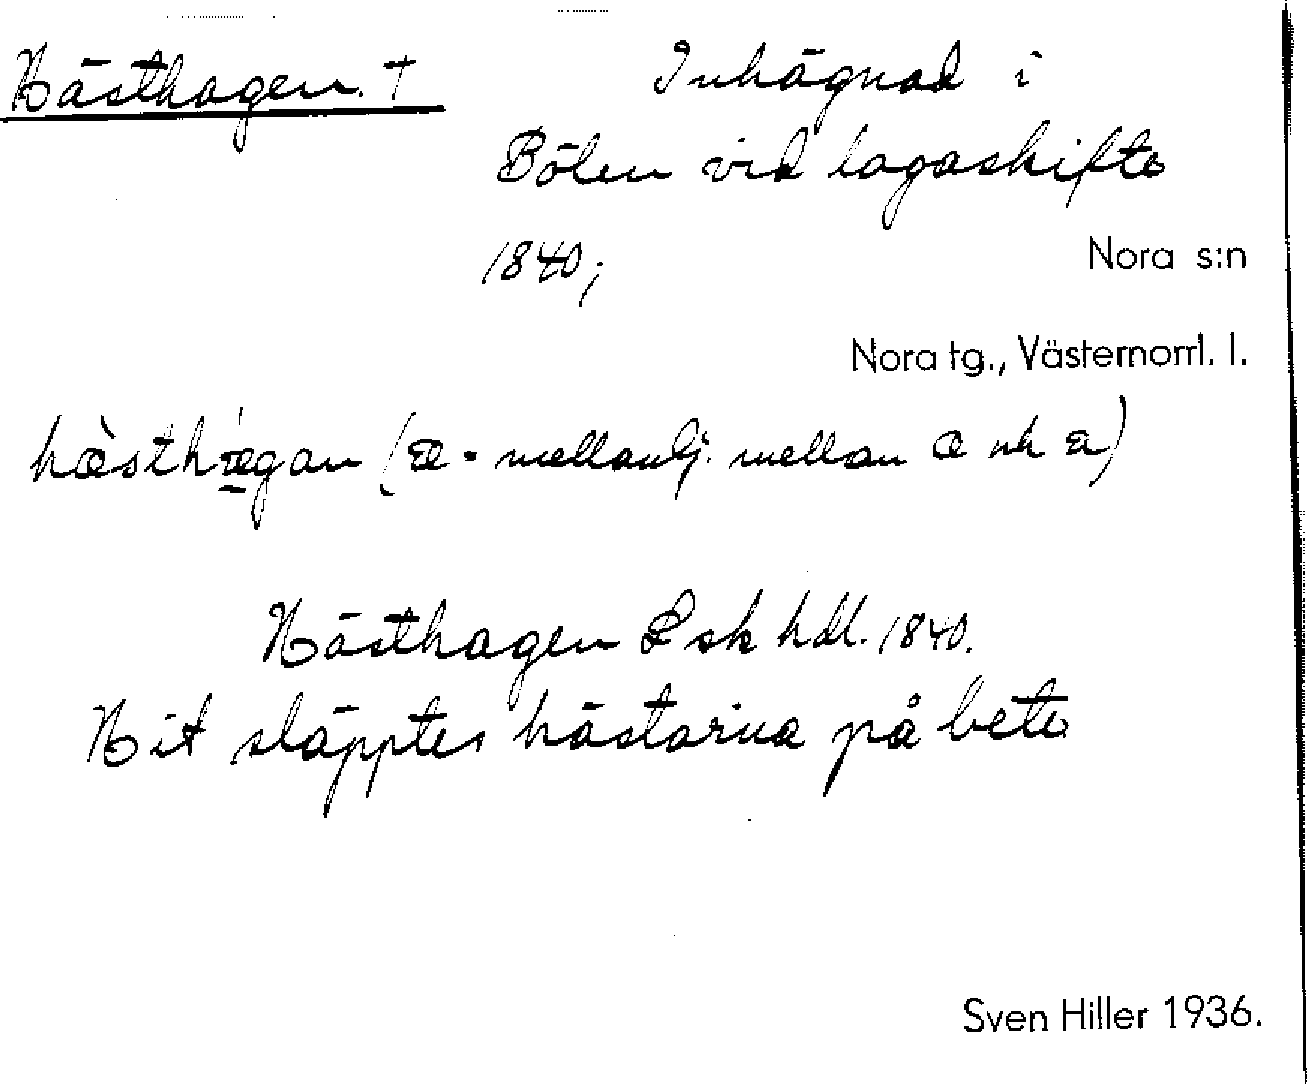 Hästhagen. †
Inhägnad i
Bölen vid lagaskifte
1840;
Nora s:n
Nora tg., Västernorrl. l.
(æ = mellanlj. mellan a och
Hästhagen L sk hdl. 1840.
Hit släpptes hästarna på bete
Sven Hiller 1936.